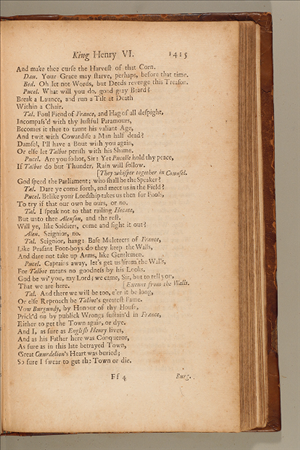 King Henry VI. 1415
And make thee curse the Harvest of that Corn.
Dau. Your Grace may starve, perhaps, before that time.
Bed. Oh let not Words, but Deeds revenge this Treason.
Pucel. What will you do, good gray Beard?
Break a Launce, and run a Tilt at Death
Within a Chair.
Tal. Foul Fiend of France, and Hag of all despight,
Incompass'd with thy lustful Paramours,
Becomes it thee to taunt his valiant Age,
And twit with Cowardise a Man half dead?
Damsel, I'll have a Bout with you again,
Or else let Talbot perish with his Shame.
Pucel. Are you so hot, Sir? Yet Pucelle hold thy peace,
If Talbot do but Thunder, Rain will follow.
[They whisper together in Counsel.
God speed the Parliament; who shall be the Speaker?
Tal. Dare ye come forth, and meet us in the Field?
Pucel. Belike your Lordship takes us then for Fools,
To try if that our own be ours, or no.
Tal. I speak not to that railing Hecate,
But unto thee Alenson, and the rest.
Will ye, like Soldiers, come and fight it out?
Alan. Seignior, no.
Tal. Seignior, hang: Base Muleteers of France,
Like Peasant Foot-boys do they keep the Walls,
And dare not take up Arms, like Gentlemen.
Pucel. Captains away, let's get us from the Walls,
For Talbot means no goodness by his Looks.
God be wi' you, my Lord; we came, Sir, but to tell you,
That we are here. [Exeunt from the Walls.
Tal. And there will we be too, e'er it be long,
Or else Reproach be Talbot's greatest Fame.
Vow Burgundy, by Honour of thy House,
Prick'd on by publick Wrongs sustain'd in France,
Either to get the Town again, or dye.
And I, as sure as English Henry lives,
And as his Father here was Conqueror,
As sure as in this late betrayed Town,
Great Cœurdelion's Heart was buried;
So sure I swear to get the Town or die.
Ff 4 Burg.